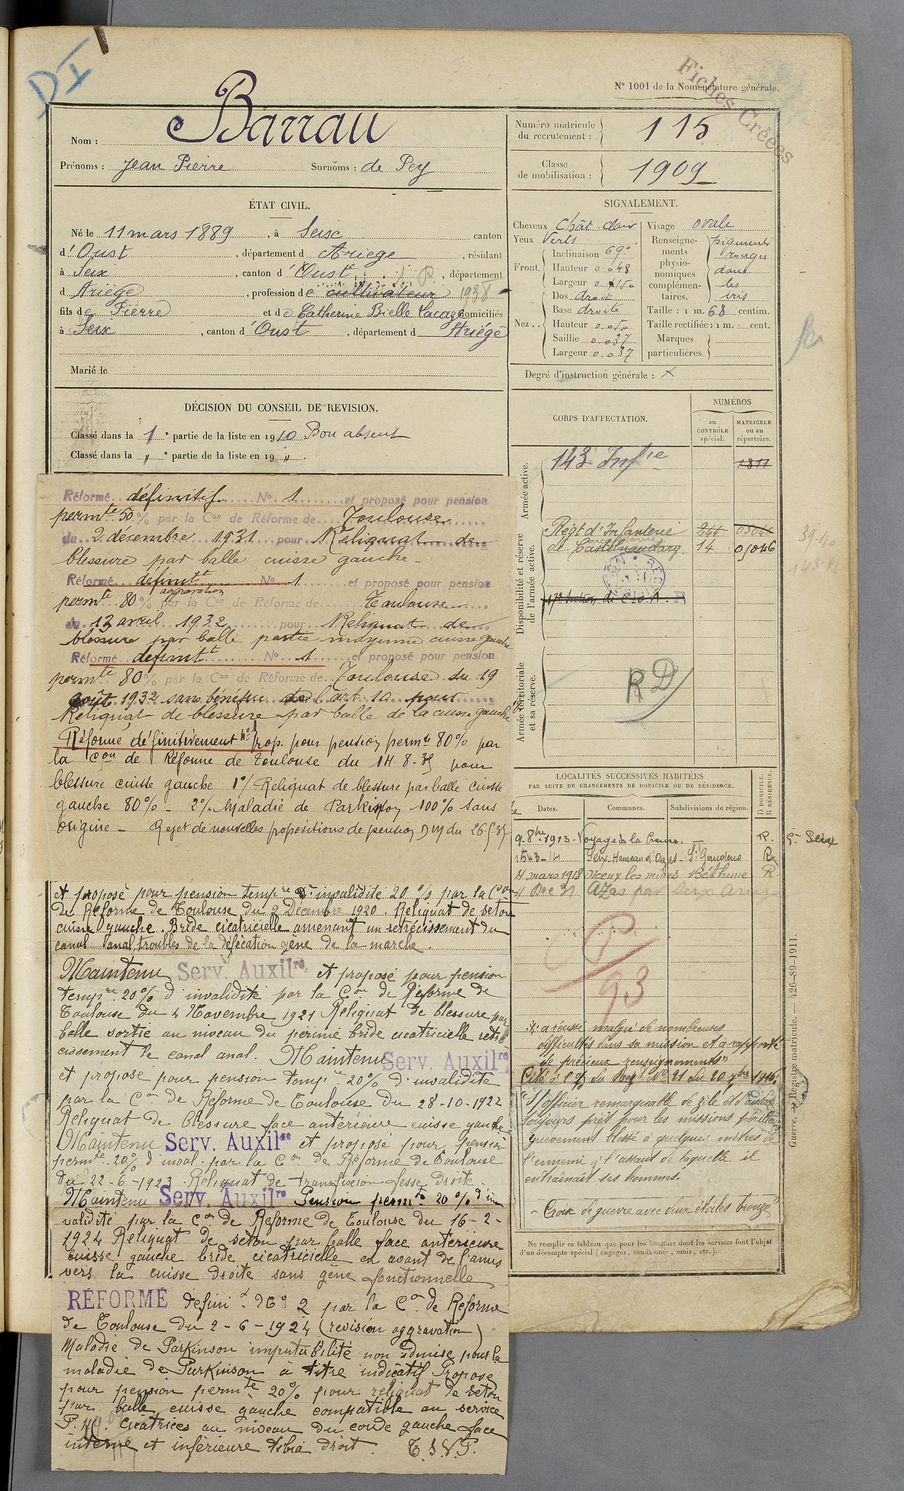 DI
N° 1001 de la Nomenclature générale.
Fiches Créées
Nom : Barrau
Prénoms : Jean Pierre Surnoms : de Pey
Numéro matricule du recrutement : 115
Classe de mobilisation : 1909
ÉTAT CIVIL.
Né le 11 mars 1889, à Seix canton
d'Oust, département d Ariège, résidant
à Seix, canton d'Oust, département
d Ariège, profession de cultivateur 1938
fils de Pierre et de Catherine Bielle Lacaze domiciliés
à Seix, canton d'Oust, département d Ariége
Marié le
SIGNALEMENT.
Cheveux Chât. clair
Yeux Verts
Front. Inclinaison 69°
Hauteur 0.048
Largeur
Nez. Dos droit
Base droite
Hauteur
Saillie 0.037
Largeur 0.037
Visage ovale
Renseignements physionomiques complémentaires. pigments rouges dans les iris
Taille : 1 m. 68 centim.
Taille rectifiée : 1 m. cent.
Marques particulières.
Degré d'instruction générale : x
DÉCISION DU CONSEIL DE REVISION.
Classé dans la 1e partie de la liste en 1910 Bon absent
Classé dans la " e partie de la liste en 19 " .
Réformé définitif N° 1 et proposé pour pension
permte 50 % par la Con de Réforme de Toulouse
du 2 decembre 1931 pour Reliquat de
blessure par balle cuisse gauche -
Réformé définitt N° 1 et proposé pour pension
aggravation
permte 80 % par la Con de Réforme de Toulouse
du 12 avril 1932 pour Reliquat de
blessure par balle partie moyenne cuisse gauche
Réformé definitt N° 1 et proposé pour pension
permte 80 % par la Con de Réforme de Toulouse du 19
août 1932 sans benefice de l'art. 10 pour
Reliquat de blessure par balle de la cuisse gauche
Réformé définitivement n° 1 prop. pour pension permte 80% par
la Con de Réforme de Toulouse du 14-8-35 pour
blessure cuisse gauche 1°/ Reliquat de blessure par balle cuisse
gauche 80% - 2°/ Maladie de Parkinson 100% sans
origine - Rejet de nouvelles propositions de pension DM du 26
et proposé pour pension tempre d'invalidité 20 % par la Con
de Réforme de Toulouse du 2 Décembre 1920. Reliquat de seton
cuisse gauche. Bride cicatricielle amenant un retrécissement du
canal anal troubles de la défécation gêne de la marche.
Maintenu Serv. Auxilre et proposé pour pension
tempre 20% d'invalidité par la Con de Réforme de
Toulouse du 4 Novembre 1921 Reliquat de blessure par
balle sortie au niveau du périné bride cicatricielle rétré
cissement le canal anal. Maintenu Serv. Auxilre
et proposé pour pension tempre 20% d'invalidité
par la Con de Réforme de Toulouse du 28-10-1922
Reliquat de blessure face antérieure cuisse gauche
Maintenu Serv. Auxilre et proposé pour pension
permte 20% d'inval. par la Con de Réforme de Toulouse
du 22-6-1923 Reliquat de transfixion fesse droite.
Maintenu Serv. Auxilre Pension permte 20 % d'in
validité par la Con de Réforme de Toulouse du 16-2-
1924 Reliquat de seton par balle face antérieure
cuisse gauche bride cicatricielle en avant de l'anus
vers la cuisse droite sans gêne fonctionnelle
RÉFORMÉ définit N° 2 par la Con de Réforme
de Toulouse du 2-6-1924 (revision aggravation)
Maladie de Parkinson imputabilité non admise pour la
maladie de Parkinson à titre indicatif Propose
pour pension permte 20% pour reliquat de seton
par balle cuisse gauche compatible au service
P. M. Cicatrices au niveau du coude gauche face
interne et inférieure tibia droit. T.S.V.P.
CORPS D'AFFECTATION.
NUMÉROS
au CONTRÔLE spécial.
MATRICULE ou au répertoire.
Armée active.
143e Infie
1877
Disponibilité et réserve de l'armée active.
Regt d'Infanterie
de Castelnaudary 14 01046
39-40
17e Section de C.O.A.
Armée territoriale et sa réserve.
RD
LOCALITÉS SUCCESSIVES HABITÉES
PAR SUITE DE CHANGEMENTS DE DOMICILE OU DE RÉSIDENCE.
Dates. Communes. Subdivisions de région. D. DOMICILE. R. RÉSIDENCE.
9-8bre-1913 R.
Seix St Gaudens R
4 mars 1918 Noeux les mines Béthune R
4 Dec 31 Azas par Seix Ariege
Seix
P
93
"a réussi malgré de nombreuses
difficultés dans sa mission et a rapporté
de précieux renseignements"
Cité à l'O. du Reg. N° 21 du 20 xbre 1916.
"Officier remarquable de zèle et d'audace
toujours prêt pour les missions périlleuses
grièvement blessé à quelques mètres de
l'ennemi, à l'assaut de laquelle il
entraînait ses hommes.
- Croix de guerre avec deux étoiles bronze"
Ne remplir ce tableau que pour les hommes dont les services font l'objet
d'un décompte spécial (engagés, condamnés, omis, etc.).
Guerre. — Registre matricule. — 426-89-1911.